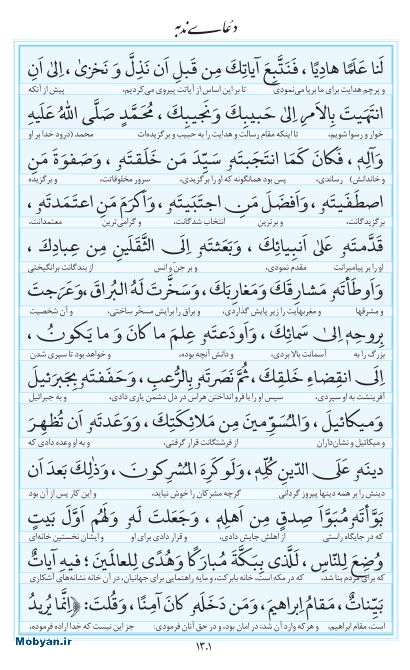 دعای ندبه
لَنا عَلَمًا هادِيًا ، فَنَتَّبِعَ آياتِكَ مِن قَبلِ اَن نَذِلَّ وَ نَخزىٰ ، اِلىٰ اَنِ
و پرچم هدایت برای ما برپا می‌نمودی تا بر این اساس از آیاتت پیروی می‌کردیم، پیش از آنکه
انتَهَيتَ بِالاَمرِ اِلىٰ حَبيبِكَ وَ نَجيبِكَ ، مُحَمَّدٍ صَلَّى اللهُ عَلَيهِ
خوار و رسوا شویم، تا اینکه مقام رسالت و هدایت را به حبیب و برگزیده‌ات محمد (درود خدا بر او
وَ آلِهِ ، فَكانَ كَمَا انتَجَبتَهُ سَيِّدَ مَن خَلَقتَهُ ، وَ صَفوَةَ مَنِ
و خاندانش) رساندی، پس بود همانگونه که او را برگزیدی، سرور مخلوقاتت، و برگزیده
اصطَفَيتَهُ ، وَ اَفضَلَ مَنِ اجتَبَيتَهُ ، وَ اَكرَمَ مَنِ اعتَمَدتَهُ ،
برگزیدگانت، و برترین انتخاب شدگانت، و گرامی‌ترین معتمدانت،
قَدَّمتَهُ عَلىٰ اَنبِيائِكَ ، وَ بَعَثتَهُ اِلَى الثَّقَلَينِ مِن عِبادِكَ ،
او را بر پیامبرانت مقدم نمودی، و بر جن و انس از بندگانت برانگیختی
وَ اَوطَأتَهُ مَشارِقَكَ وَ مَغارِبَكَ ، وَ سَخَّرتَ لَهُ البُراقَ ، وَ عَرَجتَ
و مشرقها و مغربهایت را زیر پایش گذاردی، و براق را برایش مسخّر ساختی، و آن شخصیت
بِروحِهِ اِلىٰ سَمائِكَ ، وَ اَودَعتَهُ عِلمَ ما كانَ وَ ما يَكونُ ،
بزرگ را به آسمانت بالا بردی، و دانش آنچه بوده، و خواهد بود تا سپری شدن
اِلَى انقِضاءِ خَلقِكَ ، ثُمَّ نَصَرتَهُ بِالرُّعبِ ، وَ حَفَفتَهُ بِجَبرَئيلَ
آفرینشت به او سپردی، سپس او را با فرو انداختن هراس در دل دشمن یاری دادی، و به جبرائیل
وَ ميكائيلَ ، وَ المُسَوِّمينَ مِن مَلائِكَتِكَ ، وَ وَعَدتَهُ اَن تُظهِرَ
و میکائیل و نشان‌داران از فرشتگانت قرار گرفتی، و به او وعده دادی که
دينَهُ عَلَى الدّينِ كُلِّهِ ، وَ لَو كَرِهَ المُشرِكونَ ، وَ ذٰلِكَ بَعدَ اَن
دینش را بر همه دینها پیروز گردانی گرچه مشرکان را خوش نیاید، و این کار پس از آن بود
بَوَّأتَهُ مُبَوَّأَ صِدقٍ مِن اَهلِهِ ، وَ جَعَلتَ لَهُ وَ لَهُم اَوَّلَ بَيتٍ
که در جایگاه راستی از اهلش جایش دادی، و قرار دادی برای او و ایشان نخستین خانه‌ای
وُضِعَ لِلنّاسِ ، لَلَّذي بِبَكَّةَ مُبارَكًا وَ هُدًى لِلعالَمينَ ؛ فيهِ آياتٌ
که برای مردم بنا شد، که در مکه است، خانه بابرکت، و مایه راهنمایی برای جهانیان، در آن خانه نشانه‌های آشکاری
بَيِّناتٌ ، مَقامُ اِبراهيمَ ، وَ مَن دَخَلَهُ كانَ آمِنًا ، وَ قُلتَ: ﴿اِنَّما يُريدُ
است، مقام ابراهیم، و هر که وارد آن شد، در امان بود، و در حق آنان فرمودی: جز این نیست که خدا اراده فرموده،
۱۳۰۱
Mobyan.ir